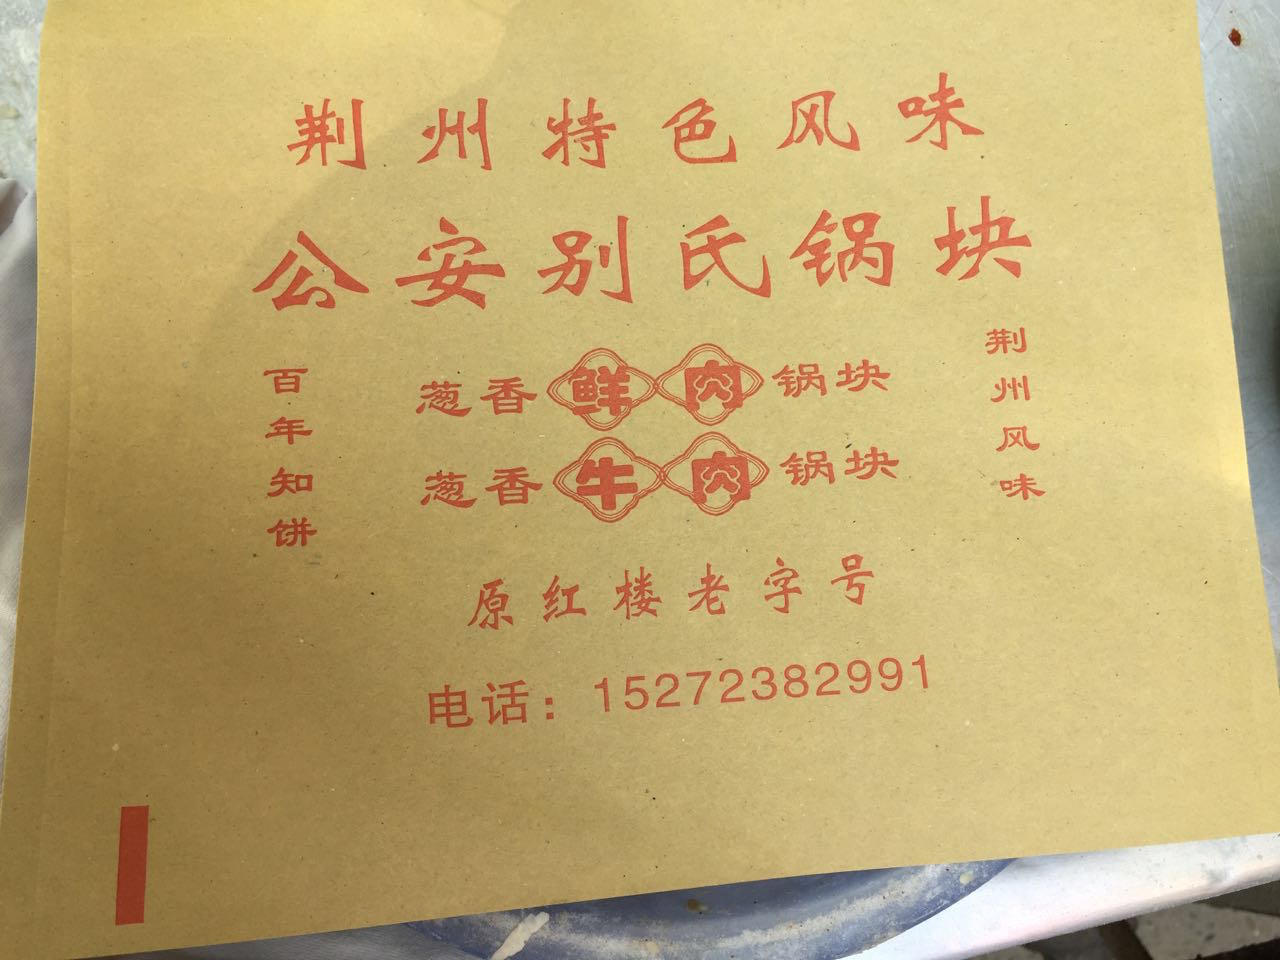 荆州特色风味
公安别氏锅块
百年知饼
葱香鲜肉锅块
葱香牛肉锅块
荆州风味
原红楼老字号
电话：15272382991